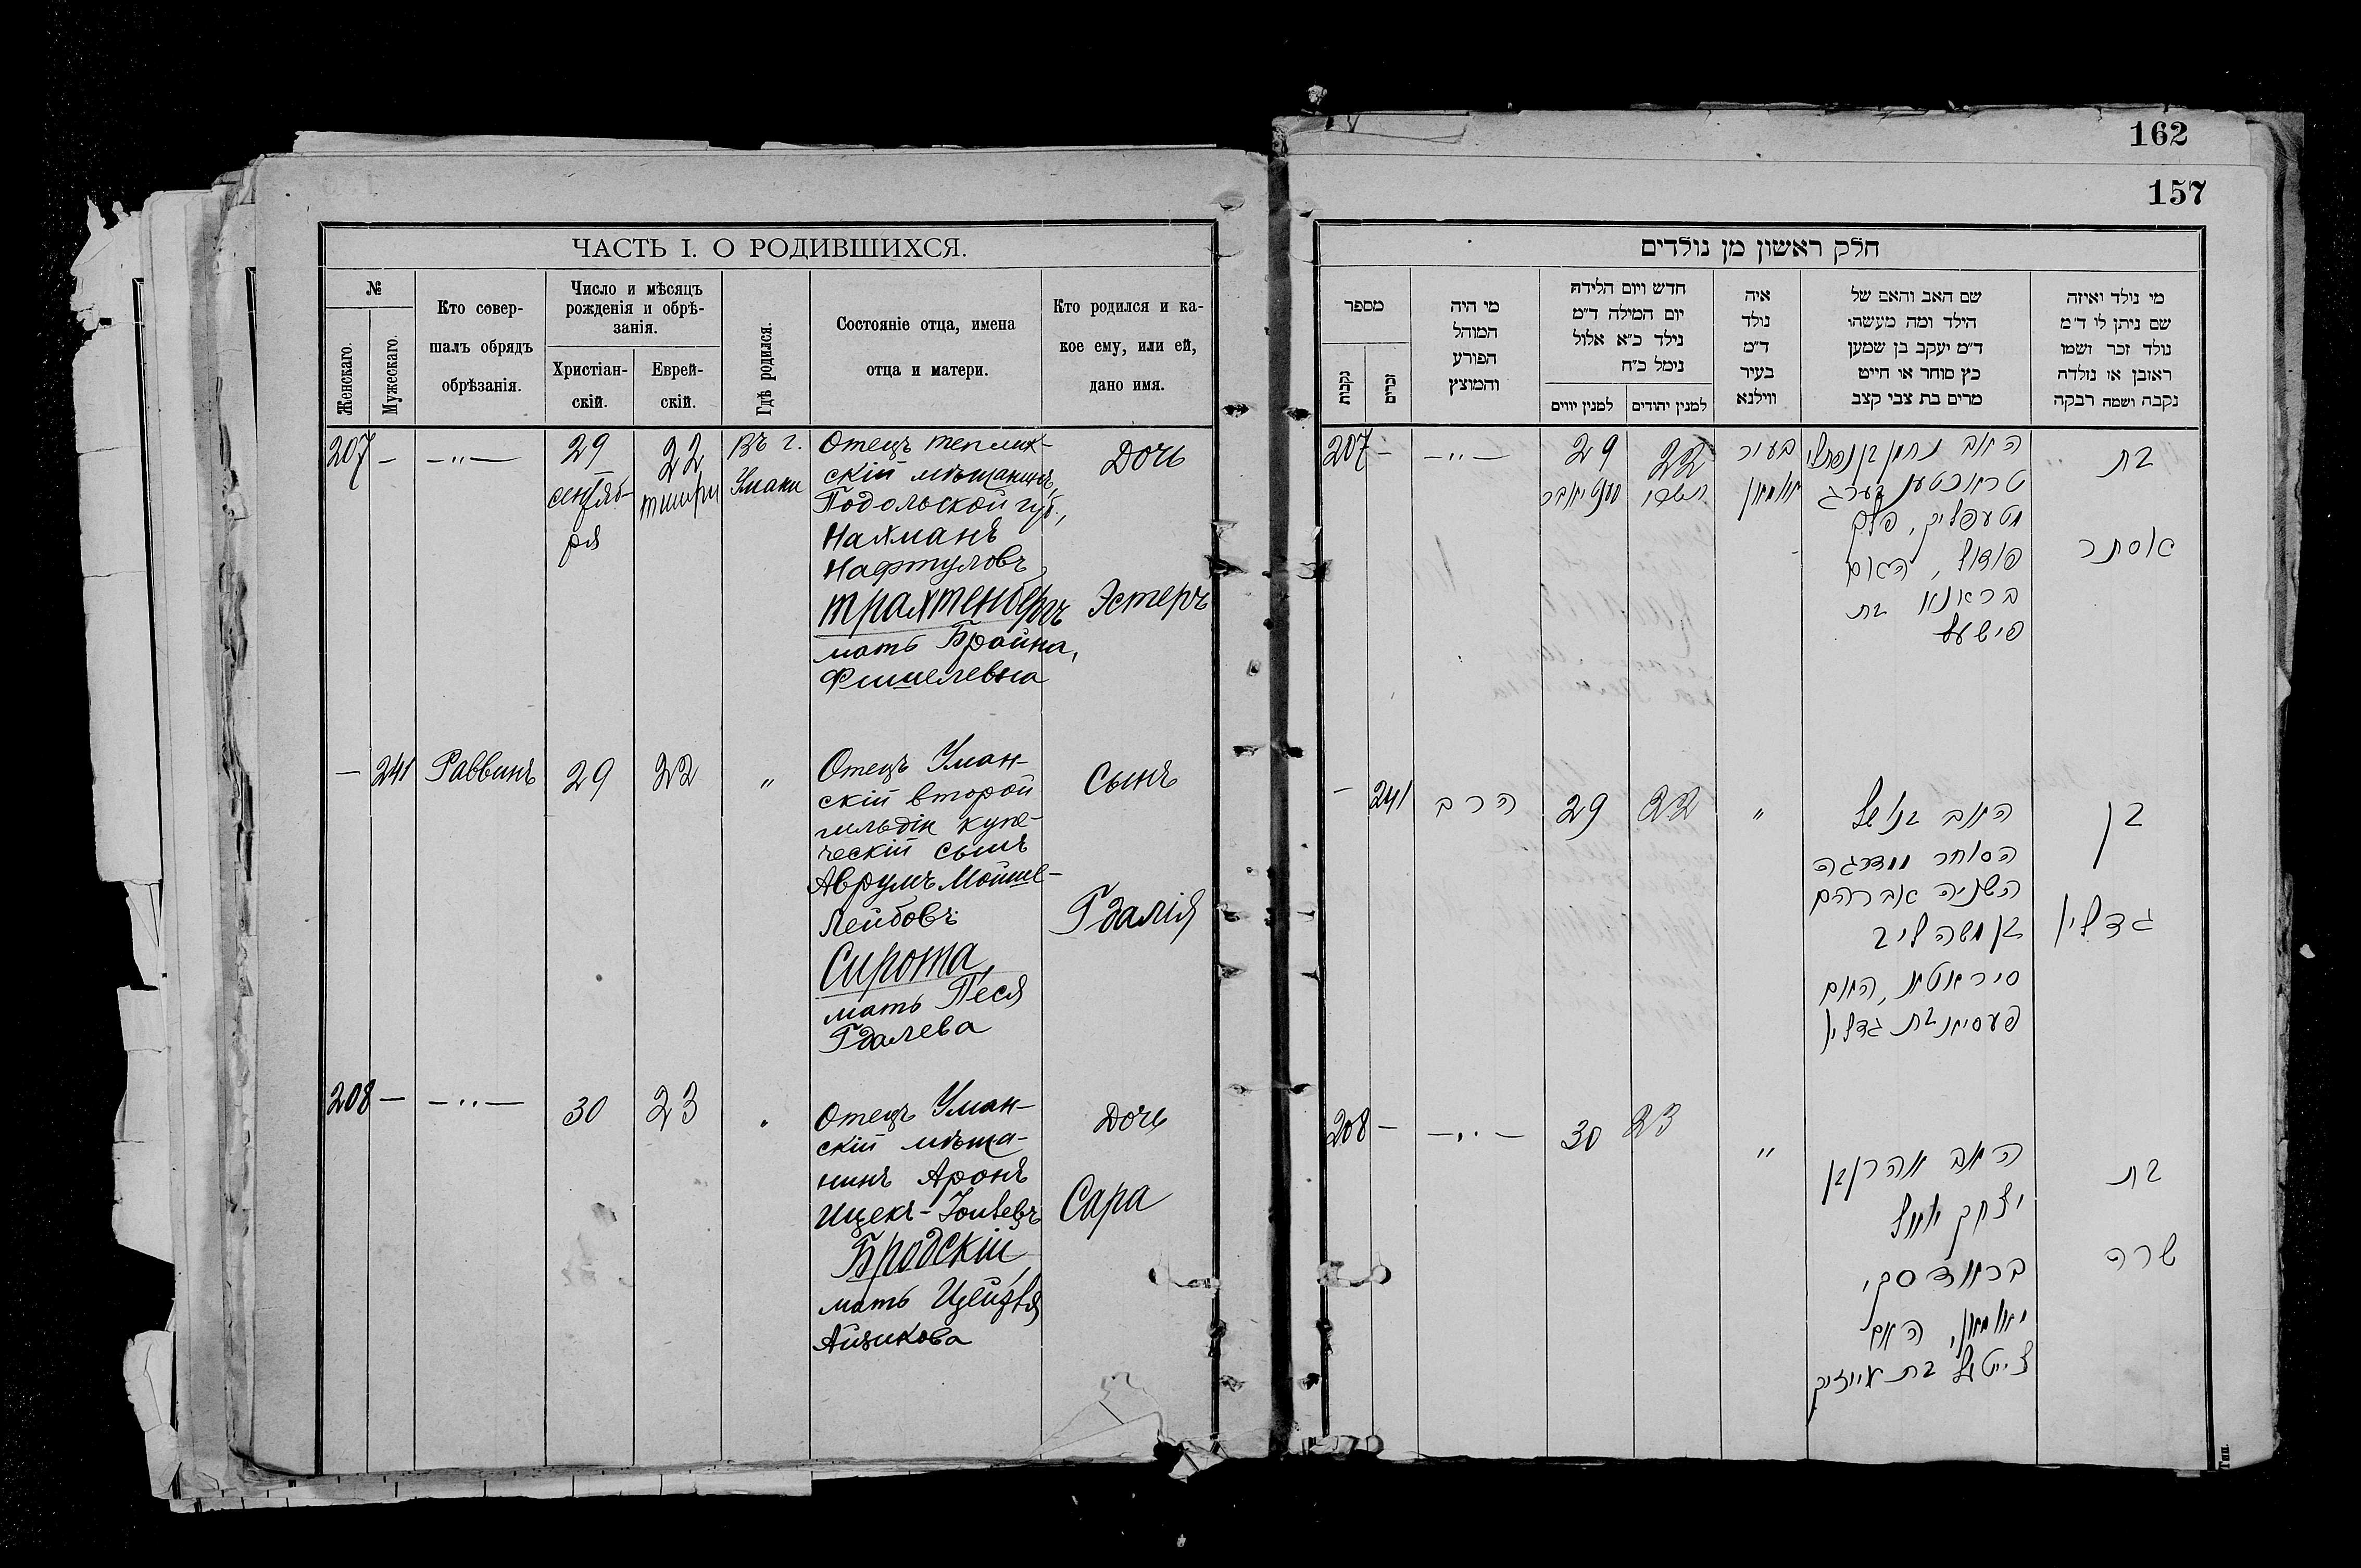 162
157
ЧАСТЬ I. О РОДИВШИХСЯ.
№
Женскаго.
Мужескаго.
Кто совер-
шалъ обрядъ
обрѣзанія.
Число и мѣсяцъ
рожденія и обрѣ-
занія.
Христіан-
скій.
Еврей-
скій.
Гдѣ родился.
Состояніе отца, имена
отца и матери.
Кто родился и ка-
кое ему, или ей,
дано имя.
207 — —〃—
29
сентяб-
ря
22
тишри
Въ г.
Умани
Отецъ теплик-
скій мѣщанинъ,
Подольской губ.,
Нахманъ
Нафтуловъ
Трахтенбергъ
мать Брайна,
Фишелевна
Дочь
Эстеръ
— 241 Раввинъ 29 22 〃
Отецъ Уман-
скій второй
гильдіи купе-
ческій сынъ
Аврумъ Мойше-
Лейбовъ
Сирота
мать Песя
Гдалева
Сынъ
Гдалія
208 — —〃— 30 23 〃
Отецъ Уман-
скій мѣща-
нинъ Аронъ
Ицекъ-
Бродскій
мать
Айзикова
Дочь
Сара
חלק ראשון מן נולדים
מספר
נקבות
זכרים
מי היה
המוהל
הפורע
והמוצץ
חדש ויום הלידה
יום המילה ד״מ
נילד כ״א אלול
נימל כ״ח
למנין יווים
למנין יהודים
איה
נולד
ד״מ
בעיר
ווילנא
שם האב והאם של
הילד ומה מעשהו
ד״מ יעקב בן שמען
כץ סוחר או חייט
מרים בת צבי קצב
מי נולד ואיזה
שם ניתן לי ד״מ
נולד זכר ושמו
ראובן או נולדה
נקבה ושמה רבקה
207 — —〃—
29
סענטיאבר
22
תשרי
בעיר
אומאן
האב נחמן בן נפתלי
טראכטענבערג
מטעפליק, פלך
פודאל, האם
בראנא בת
פישעל
בת
אסתר
— 241 הרב 29 22 〃
האב
הסוחר מדרגה
השניה אברהם
בן משה ליב
סיראטא, האם
פעסיא בת גדליו
בן
גדליו
208 — —〃— 30 23 〃
האב אהרן בן
יצחק יואל
בראדסקי,
האם
צייטל בת אייזיק
בת
שרה
Тип.